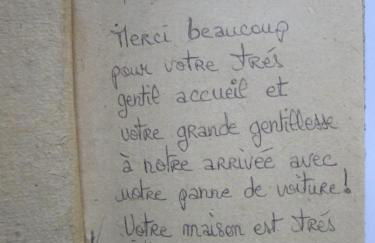 Merci beaucoup
pour votre trés
gentil accueil et
votre grande gentillesse
à notre arrivée avec
notre panne de voiture!
Votre maison est trés